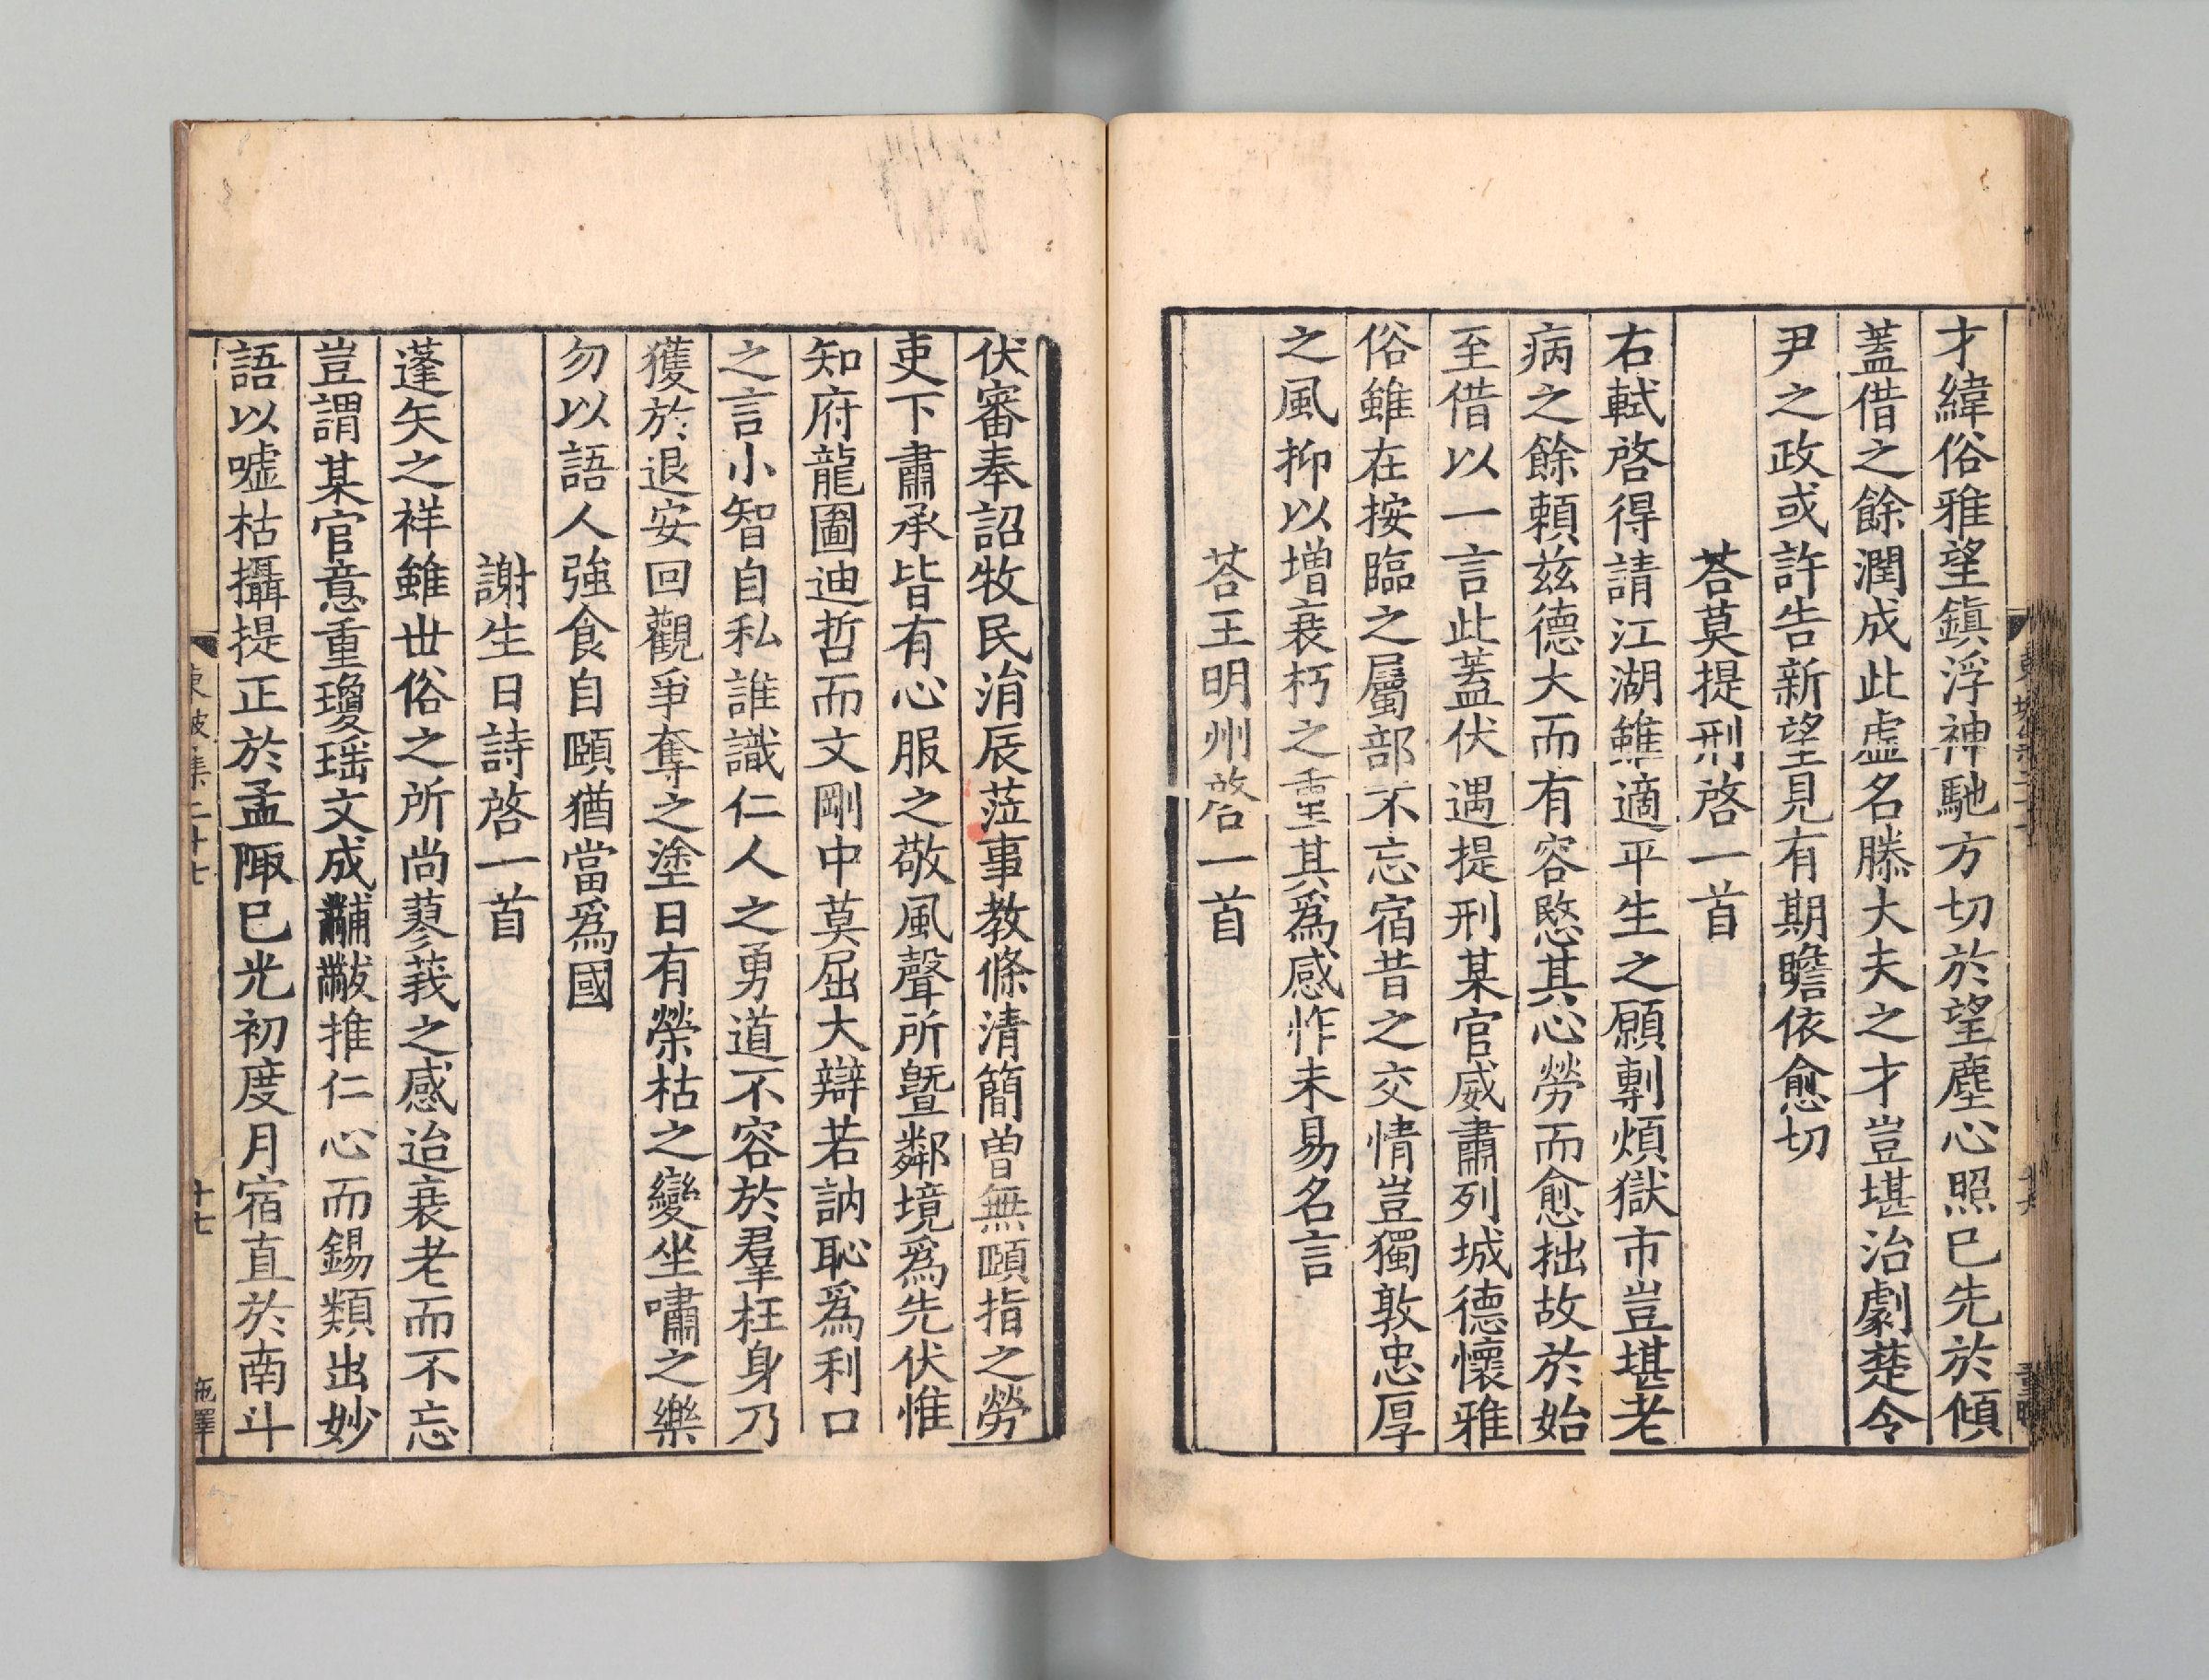 才緯俗雅望鎮浮神馳方切於望塵心照已先於傾
蓋借之餘潤成此虛名滕大夫之才豈堪治劇楚令
尹之政或許告新望見有期瞻依愈切
荅莫提刑啓一首
右軾啓得請江湖雖適平生之願剸煩獄市豈堪老
病之餘頼兹德大而有容愍其心勞而愈拙故於始
至借以一言此蓋伏遇提刑某官威肅列城德懷雅
俗雖在按臨之屬部不忘宿昔之交情豈獨敦忠厚
之風抑以增衰朽之重其爲感怍未易名言
荅王明州啓一首
伏審奉詔牧民涓辰蒞事教條清簡曾無頤指之勞
吏下肅承皆有心服之敬風聲所曁鄰境爲先伏惟
知府龍圖迪哲而文剛中莫屈大辯若訥恥爲利口
之言小智自私誰識仁人之勇道不容於羣枉身乃
獲於退安回觀爭奪之塗日有榮枯之變坐嘯之樂
勿以語人強食自頤猶當爲國
謝生日詩啓一首
蓬矢之祥雖世俗之所尚蓼莪之感迨衰老而不忘
豈謂某官意重瓊瑤文成黼黻推仁心而錫類出妙
語以噓枯攝提正於孟陬已光初度月宿直於南斗
東坡集二十七
十七